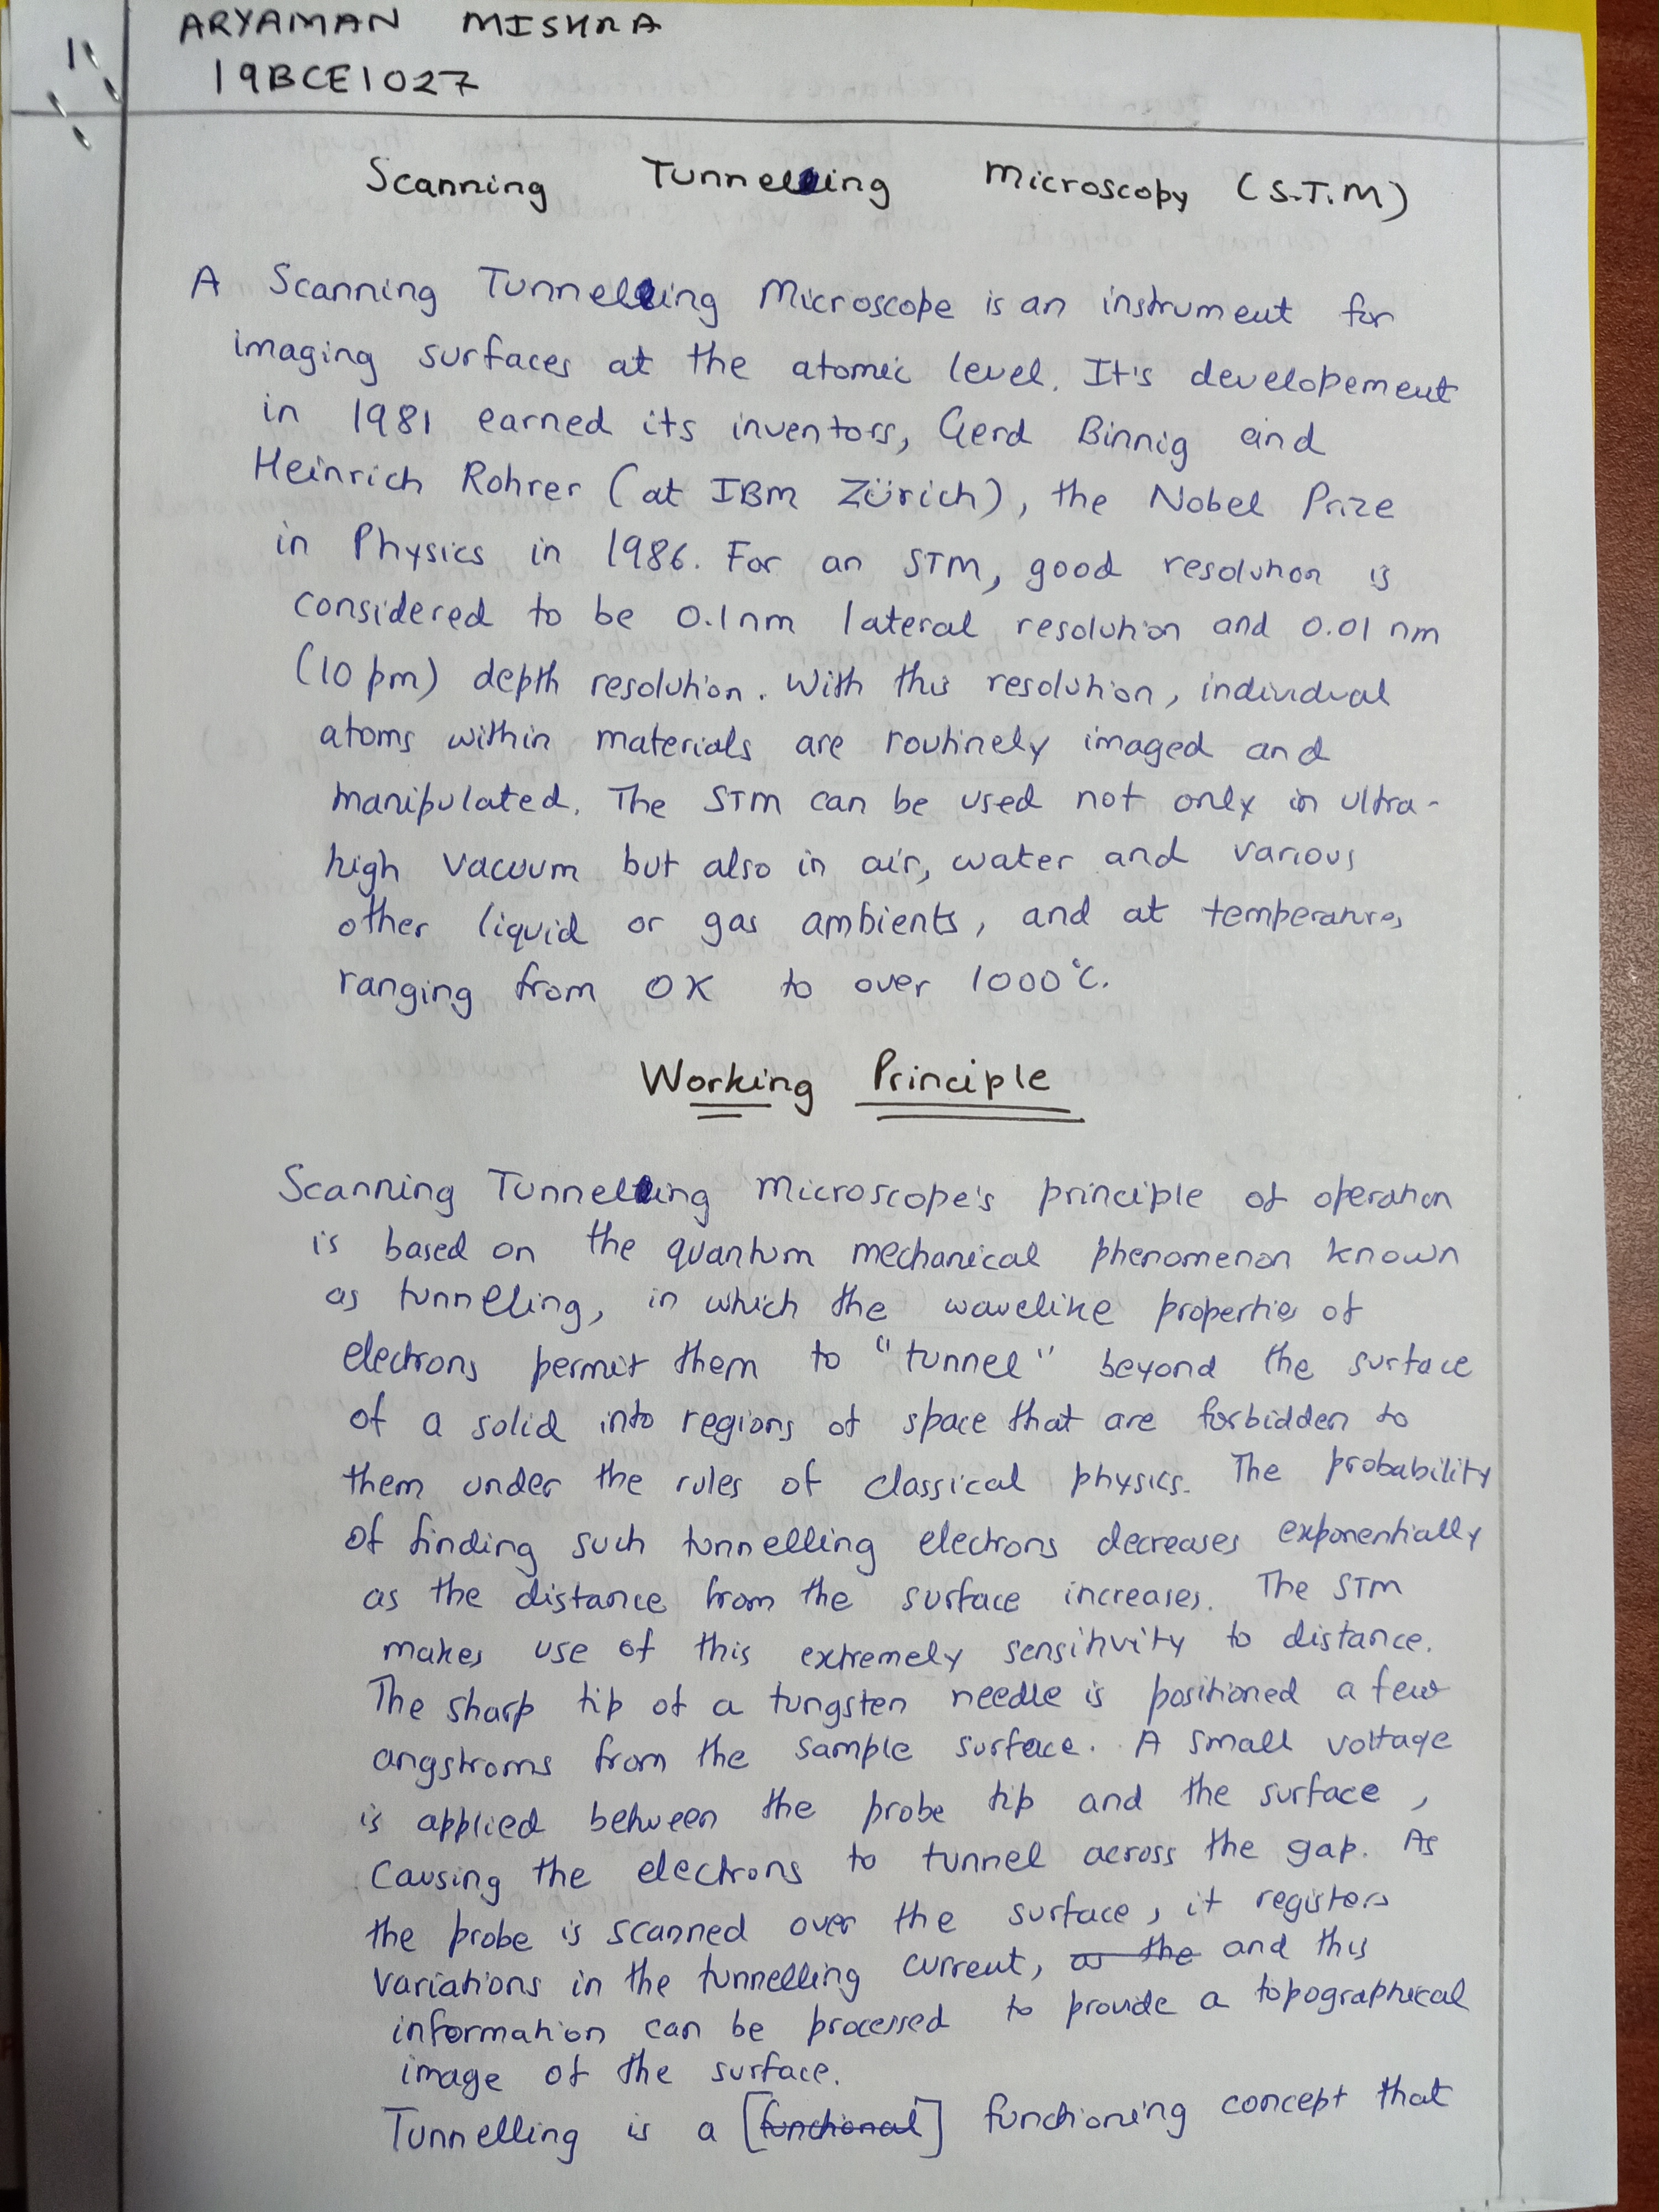 1
ARYAMAN MISHRA
19BCE1027
Scanning Tunnelling Microscopy (S.T.M)
A Scanning Tunnelling Microscope is an instrument for
imaging surfaces at the atomic level. It's developement
in 1981 earned its inventors, Gerd Binnig and
Heinrich Rohrer (at IBM Zürich), the Nobel Prize
in Physics in 1986. For an STM, good resolution is
considered to be 0.1nm lateral resolution and 0.01 nm
(10 pm) depth resolution. With this resolution, individual
atoms within materials are routinely imaged and
manipulated. The STM can be used not only in ultra-
high vacuum but also in air, water and various
other liquid or gas ambients, and at temperatures
ranging from 0K to over 1000°C.
Working Principle
Scanning Tunnelling Microscope's principle of operation
is based on the quantum mechanical phenomenon known
as tunnelling, in which the wavelike properties of
electrons permit them to "tunnel" beyond the surface
of a solid into regions of space that are forbidden to
them under the rules of classical physics. The probability
of finding such tunnelling electrons decreases exponentially
as the distance from the surface increases. The STM
makes use of this extremely sensitivity to distance.
The sharp tip of a tungsten needle is positioned a few
angstroms from the sample surface. A small voltage
is applied between the probe tip and the surface,
causing the electrons to tunnel across the gap. As
the probe is scanned over the surface, it registers
variations in the tunnelling current, as the and this
information can be processed to provide a topographical
image of the surface.
Tunnelling is a [functional] functioning concept that